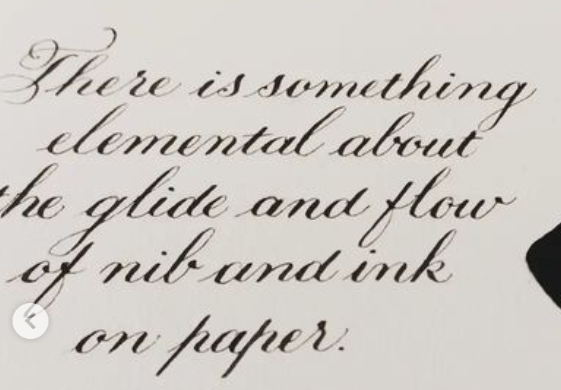 There is something
elemental about
the glide and flow
of nib and ink
on paper.